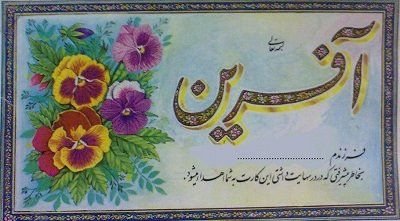 بسمه تعالی
آفرین
فرزندم ........................
بخاطر پیشرفتی که در درسهایت داشتی این کارت به شما هدا میشود.